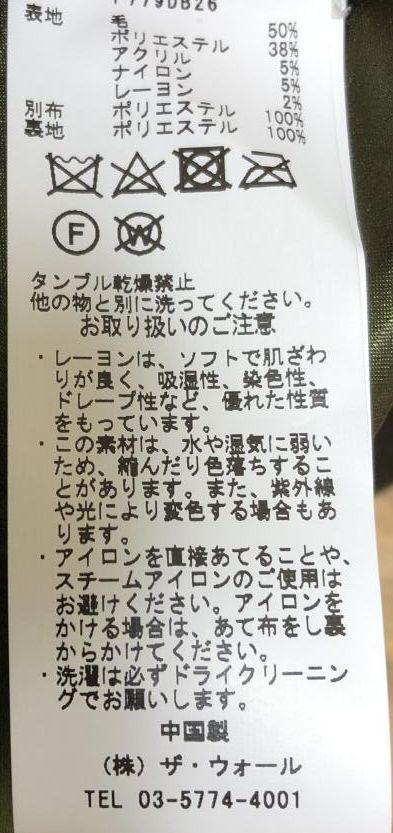 7790B26
表地 毛 50%
ポリエステル 38%
アクリル 5%
ナイロン 5%
レーヨン 2%
別布 ポリエステル 100%
裏地 ポリエステル 100%
F W
タンブル乾燥禁止
他の物と別に洗ってください。
お取り扱いのご注意
・レーヨンは、ソフトで肌ざわ
りが良く、吸湿性、染色性、
ドレープ性など、優れた性質
をもっています。
・この素材は、水や湿気に弱い
ため、縮んだり色落ちするこ
とがあります。また、紫外線
や光により変色する場合もあ
ります。
・アイロンを直接あてることや、
スチームアイロンのご使用は
お避けください。アイロンを
かける場合は、あて布をし裏
からかけてください。
・洗濯は必ずドライクリーニン
グでお願いします。
中国製
(株) ザ・ウォール
TEL 03-5774-4001